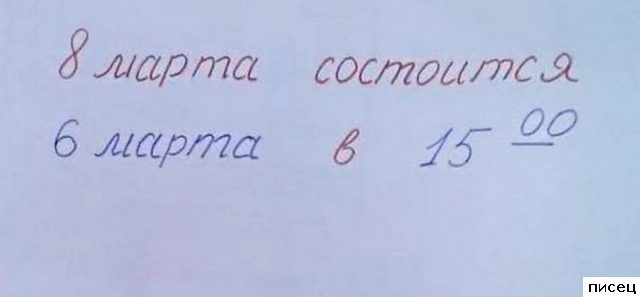 8 марта состоится
6 марта в 15 00
писец